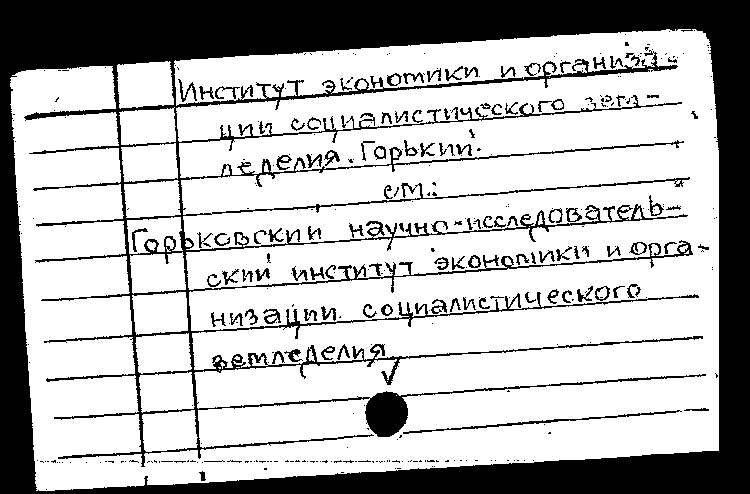 Институт экономики и организа-
ции социалистического зем-
леделия. Горький.
см.:
Горьковский научно-исследователь-
ский институт экономики и орга-
низации социалистического
земледелия